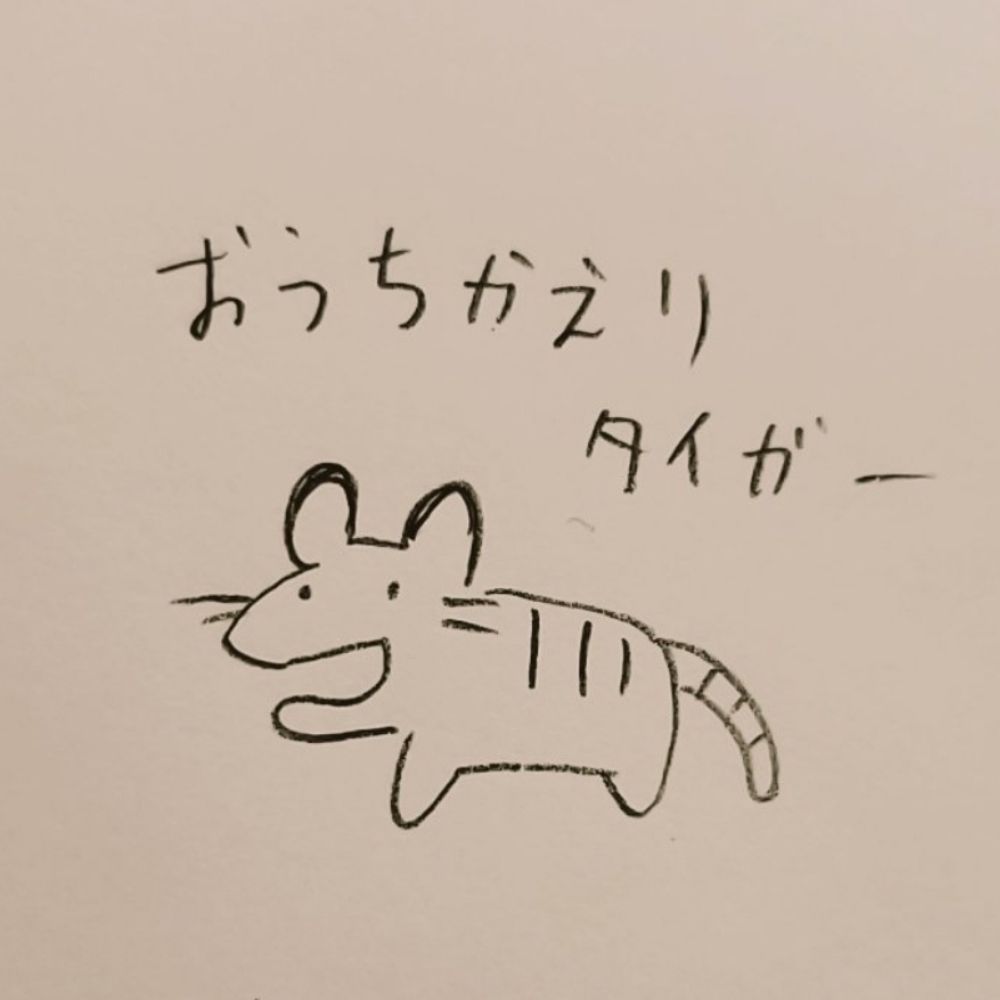 おうちかえり
タイガー